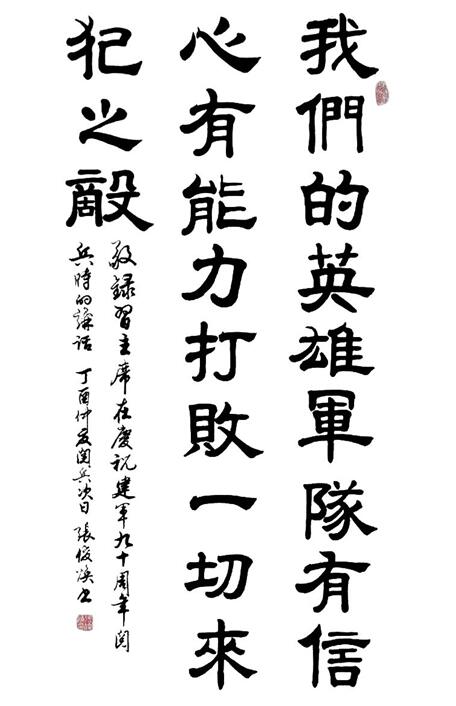 我們的英雄軍隊有信
心有能力打敗一切來
犯之敵
敬錄習主席在慶祝建軍九十周年閱
兵時的講話 丁酉仲夏閱兵次日 張俊煥書